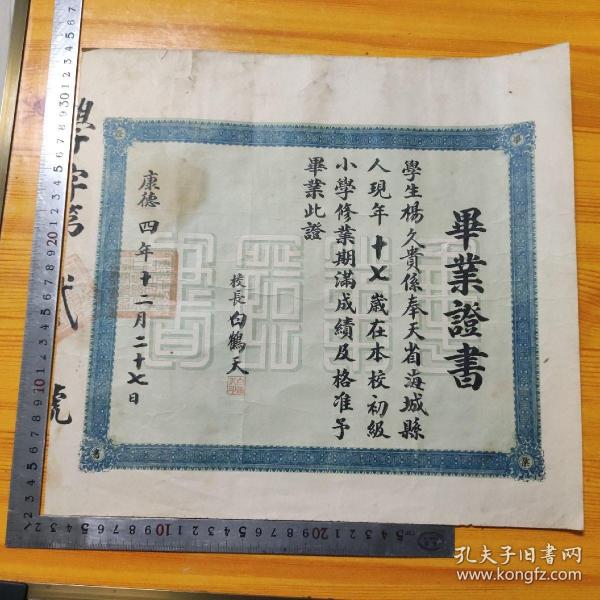 畢業證書
學生楊久貴係奉天省海城縣
人現年十七歲在本校初級
小學修業期滿成績及格准予
畢業此證
校長白鶴天
康德四年十二月二十七日
字第貳號
畢業證書
孔夫子旧书网
www.kongfz.com